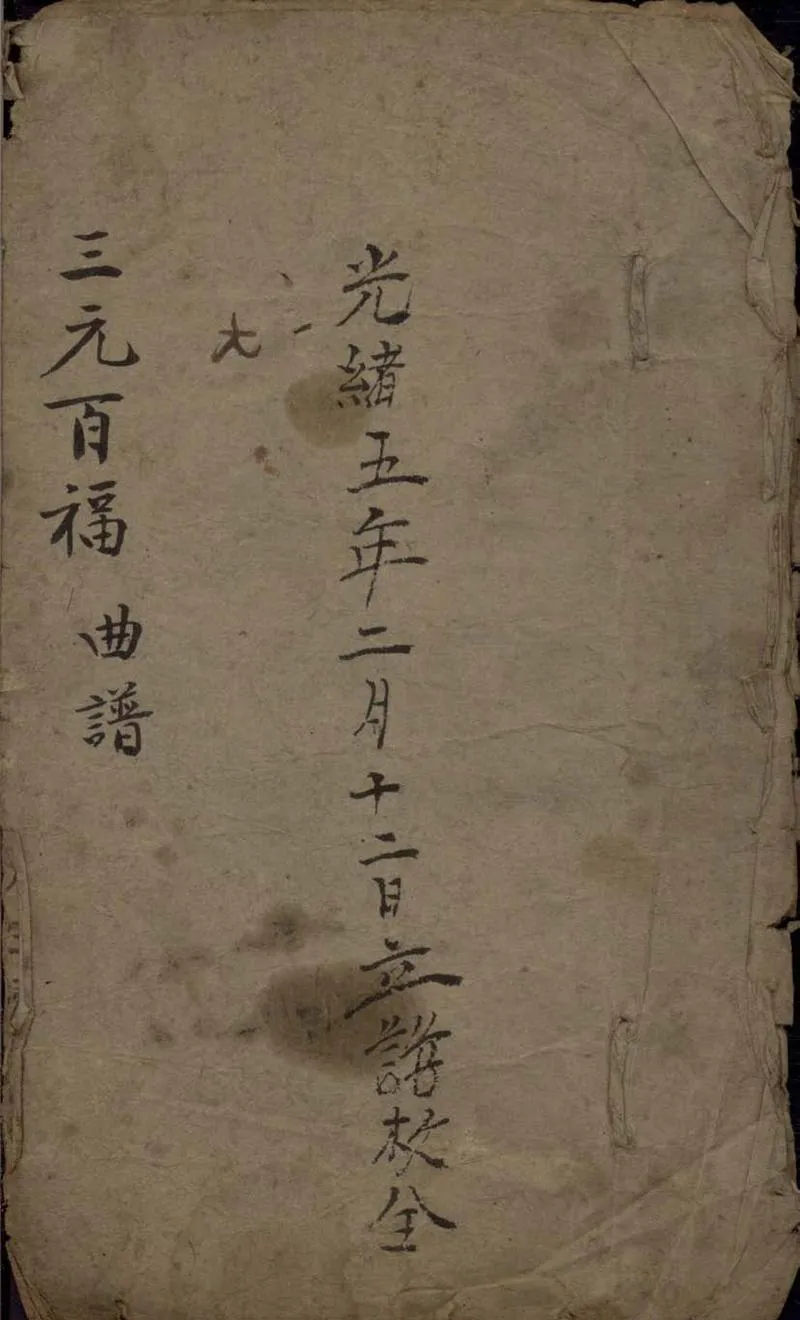 光緒五年二月十二日立講枚全
大一
三元百福 曲譜